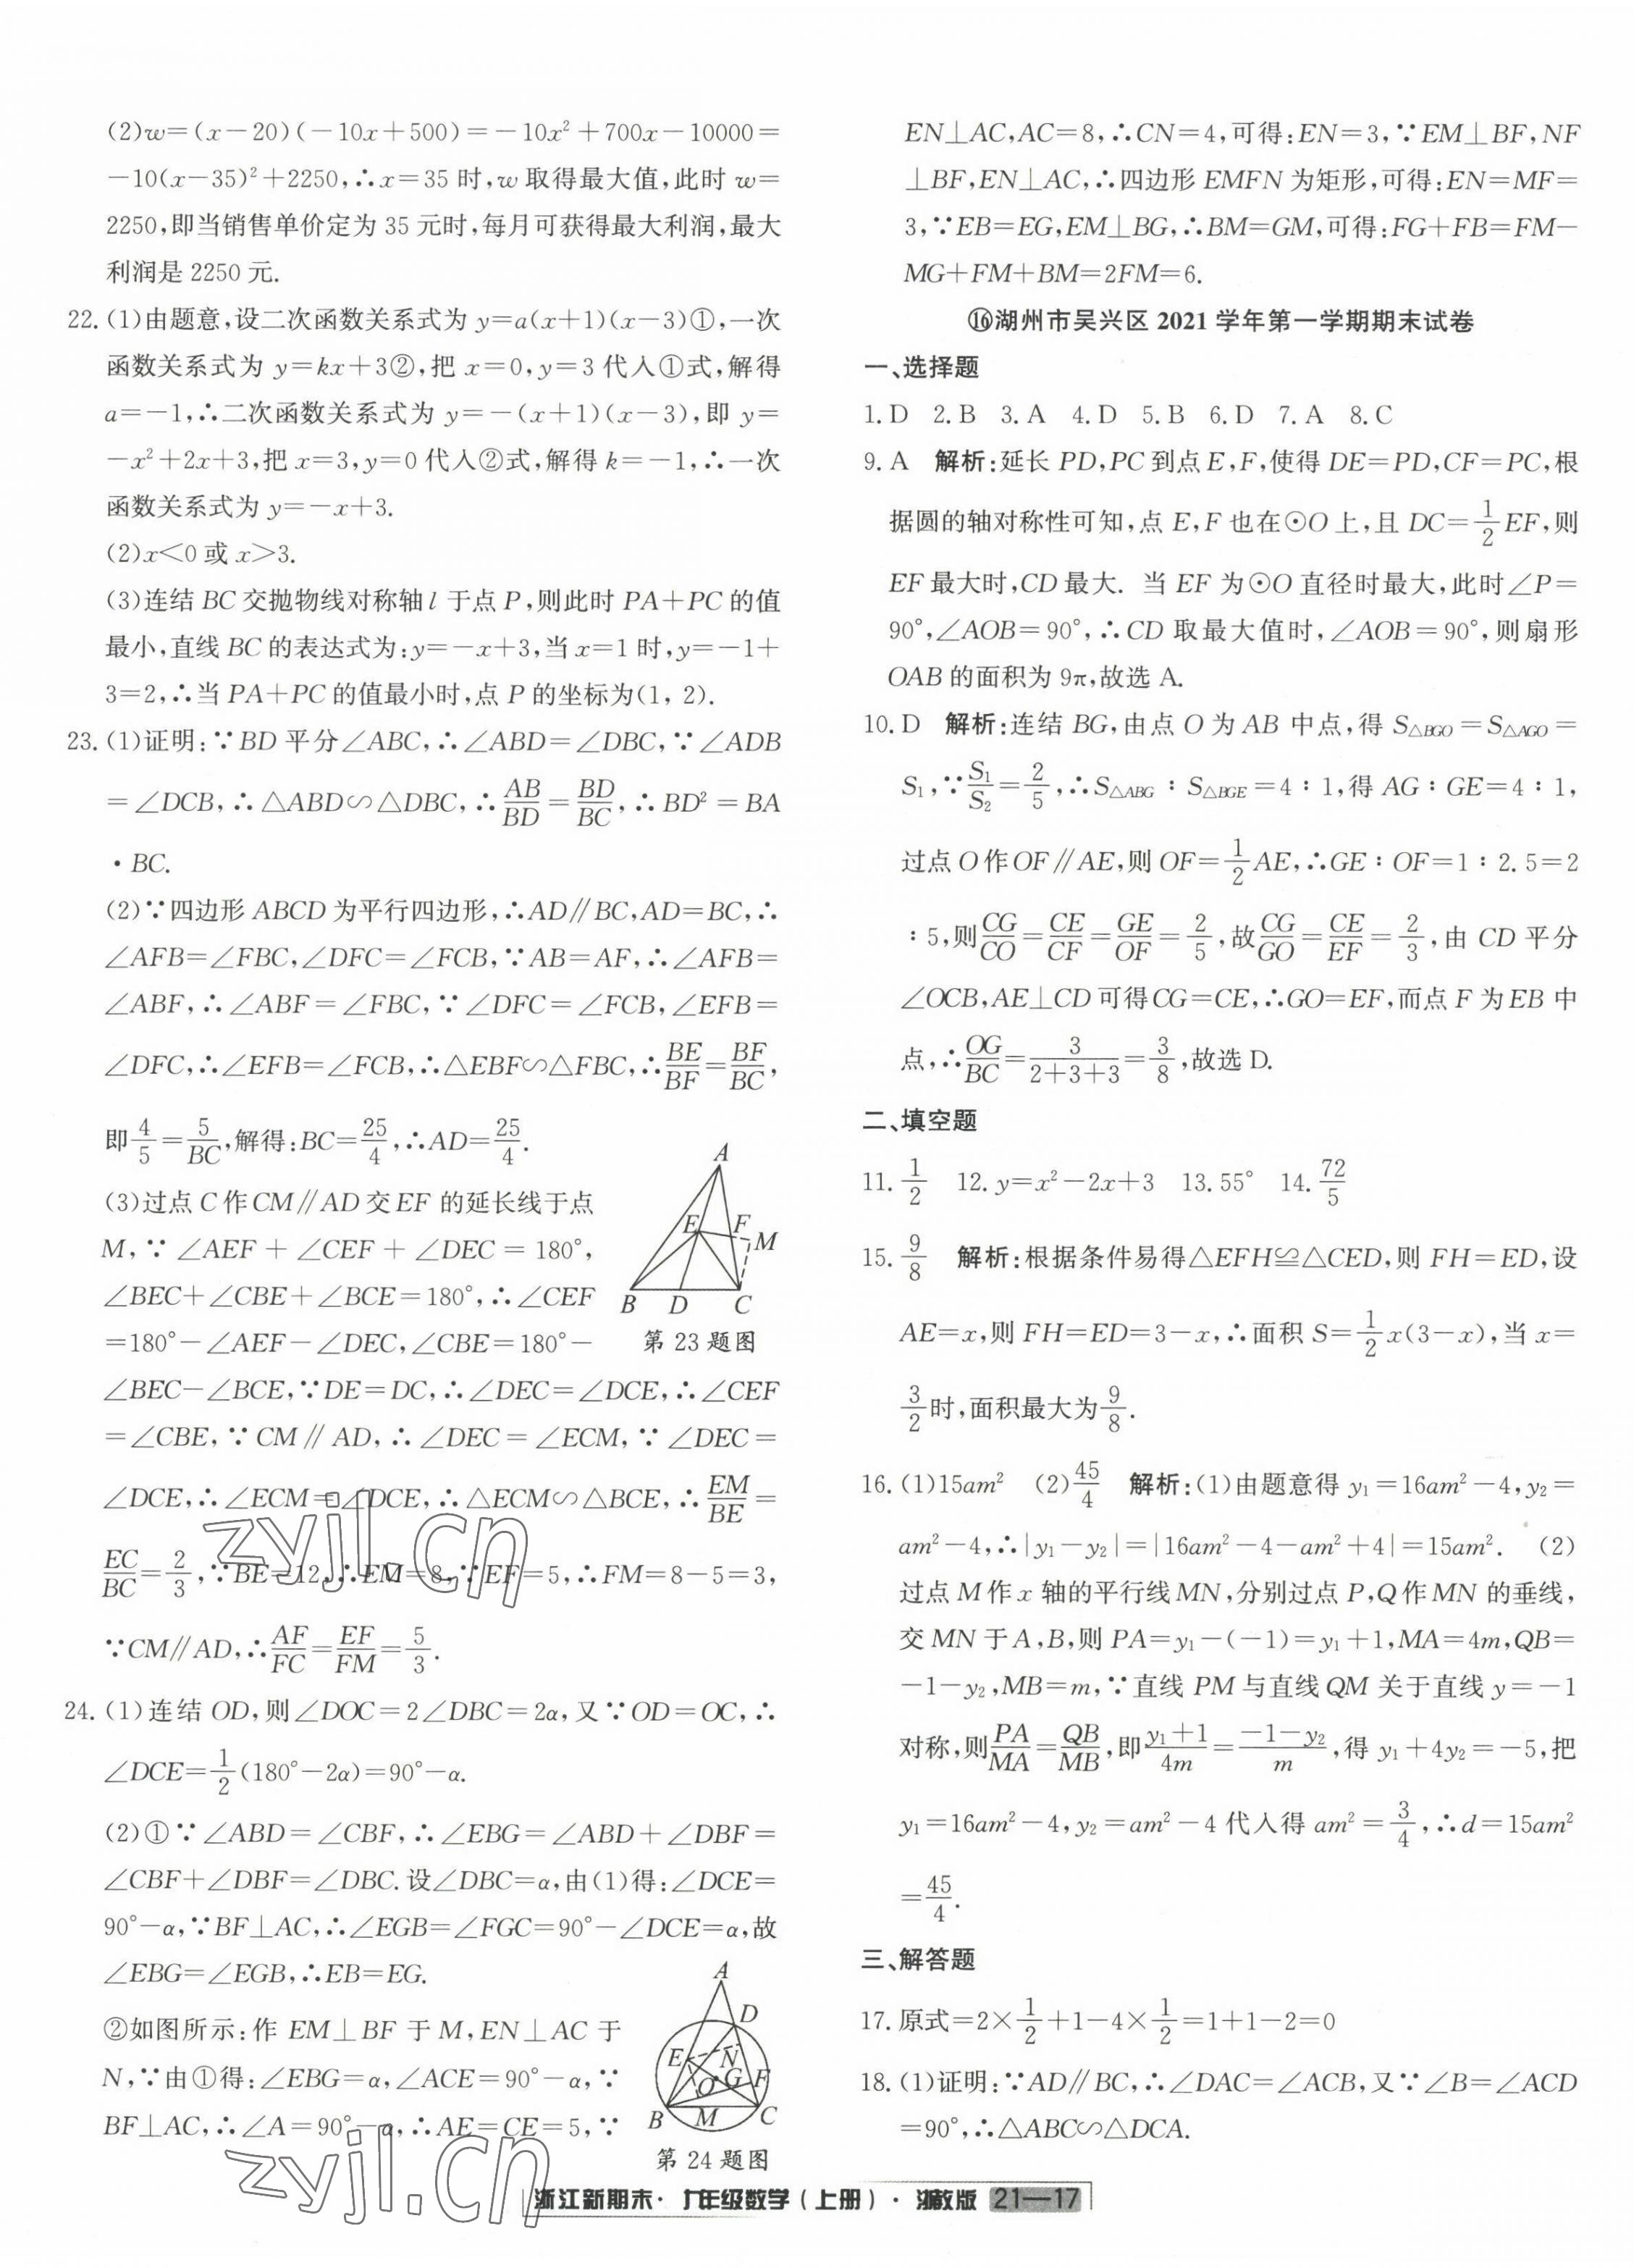 (2)w=(x-20)(-10x+500)=-10x²+700x-10000=
-10(x-35)²+2250,∴x=35时,w取得最大值,此时w=
2250,即当销售单价定为35元时,每月可获得最大利润,最大
利润是2250元.
22.(1)由题意,设二次函数关系式为y=a(x+1)(x-3)①,一次
函数关系式为y=kx+3②,把x=0,y=3代入①式,解得
a=-1,∴二次函数关系式为y=-(x+1)(x-3),即y=
-x²+2x+3,把x=3,y=0代入②式,解得k=-1,∴一次
函数关系式为y=-x+3.
(2)x<0或x>3.
(3)连结BC交抛物线对称轴l于点P,则此时PA+PC的值
最小,直线BC的表达式为:y=-x+3,当x=1时,y=-1+
3=2,∴当PA+PC的值最小时,点P的坐标为(1, 2).
23.(1)证明:∵BD平分∠ABC,∴∠ABD=∠DBC,∵∠ADB
=∠DCB,∴△ABD∽△DBC,∴AB/BD=BD/BC,∴BD²=BA
·BC.
(2)∵四边形ABCD为平行四边形,∴AD∥BC,AD=BC,∴
∠AFB=∠FBC,∠DFC=∠FCB,∵AB=AF,∴∠AFB=
∠ABF,∴∠ABF=∠FBC,∵∠DFC=∠FCB,∠EFB=
∠DFC,∴∠EFB=∠FCB,∴△EBF∽△FBC,∴BE/BF=BF/BC,
即4/5=5/BC,解得:BC=25/4,∴AD=25/4.
(3)过点C作CM∥AD交EF的延长线于点
M,∵∠AEF+∠CEF+∠DEC=180°,
∠BEC+∠CBE+∠BCE=180°,∴∠CEF
=180°-∠AEF-∠DEC,∠CBE=180°-
∠BEC-∠BCE,∵DE=DC,∴∠DEC=∠DCE,∴∠CEF
=∠CBE,∵CM∥AD,∴∠DEC=∠ECM,∵∠DEC=
∠DCE,∴∠ECM=∠DCE,∴△ECM∽△BCE,∴EM/BE=
EC/BC=2/3,∵BE=12,∴EM=8,∵EF=5,∴FM=8-5=3,
∵CM∥AD,∴AF/FC=EF/FM=5/3.
A
E F M
B D C
第23题图
24.(1)连结OD,则∠DOC=2∠DBC=2α,又∵OD=OC,∴
∠DCE=1/2(180°-2α)=90°-α.
(2)①∵∠ABD=∠CBF,∴∠EBG=∠ABD+∠DBF=
∠CBF+∠DBF=∠DBC.设∠DBC=α,由(1)得:∠DCE=
90°-α,∵BF⊥AC,∴∠EGB=∠FGC=90°-∠DCE=α,故
∠EBG=∠EGB,∴EB=EG.
②如图所示:作EM⊥BF于M,EN⊥AC于
N,∵由①得:∠EBG=α,∠ACE=90°-α,∵
BF⊥AC,∴∠A=90°-α,∴AE=CE=5,∵
A
D
E N
O G F
B M C
第24题图
EN⊥AC,AC=8,∴CN=4,可得:EN=3,∵EM⊥BF,NF
⊥BF,EN⊥AC,∴四边形EMFN为矩形,可得:EN=MF=
3,∵EB=EG,EM⊥BG,∴BM=GM,可得:FG+FB=FM-
MG+FM+BM=2FM=6.
⑯湖州市吴兴区2021学年第一学期期末试卷
一、选择题
1.D 2.B 3.A 4.D 5.B 6.D 7.A 8.C
9.A 解析:延长PD,PC到点E,F,使得DE=PD,CF=PC,根
据圆的轴对称性可知,点E,F也在⊙O上,且DC=1/2EF,则
EF最大时,CD最大. 当EF为⊙O直径时最大,此时∠P=
90°,∠AOB=90°,∴CD取最大值时,∠AOB=90°,则扇形
OAB的面积为9π,故选A.
10.D 解析:连结BG,由点O为AB中点,得S△BGO=S△AGO=
S₁,∵S₁/S₂=2/5,∴S△ABG∶S△BGE=4∶1,得AG∶GE=4∶1,
过点O作OF∥AE,则OF=1/2AE,∴GE∶OF=1∶2.5=2
∶5,则CG/CO=CE/CF=GE/OF=2/5,故CG/GO=CE/EF=2/3,由CD平分
∠OCB,AE⊥CD可得CG=CE,∴GO=EF,而点F为EB中
点,∴OG/BC=3/(2+3+3)=3/8,故选D.
二、填空题
11.1/2 12.y=x²-2x+3 13.55° 14.72/5
15.9/8 解析:根据条件易得△EFH≌△CED,则FH=ED,设
AE=x,则FH=ED=3-x,∴面积S=1/2x(3-x),当x=
3/2时,面积最大为9/8.
16.(1)15am² (2)45/4 解析:(1)由题意得y₁=16am²-4,y₂=
am²-4,∴|y₁-y₂|=|16am²-4-am²+4|=15am². (2)
过点M作x轴的平行线MN,分别过点P,Q作MN的垂线,
交MN于A,B,则PA=y₁-(-1)=y₁+1,MA=4m,QB=
-1-y₂,MB=m,∵直线PM与直线QM关于直线y=-1
对称,则PA/MA=QB/MB,即(y₁+1)/4m=(-1-y₂)/m,得y₁+4y₂=-5,把
y₁=16am²-4,y₂=am²-4代入得am²=3/4,∴d=15am²
=45/4.
三、解答题
17.原式=2×1/2+1-4×1/2=1+1-2=0
18.(1)证明:∵AD∥BC,∴∠DAC=∠ACB,又∵∠B=∠ACD
=90°,∴△ABC∽△DCA.
zyjl.cn
zyjl.cn
浙江新期末·九年级数学(上册)·浙教版 21—17